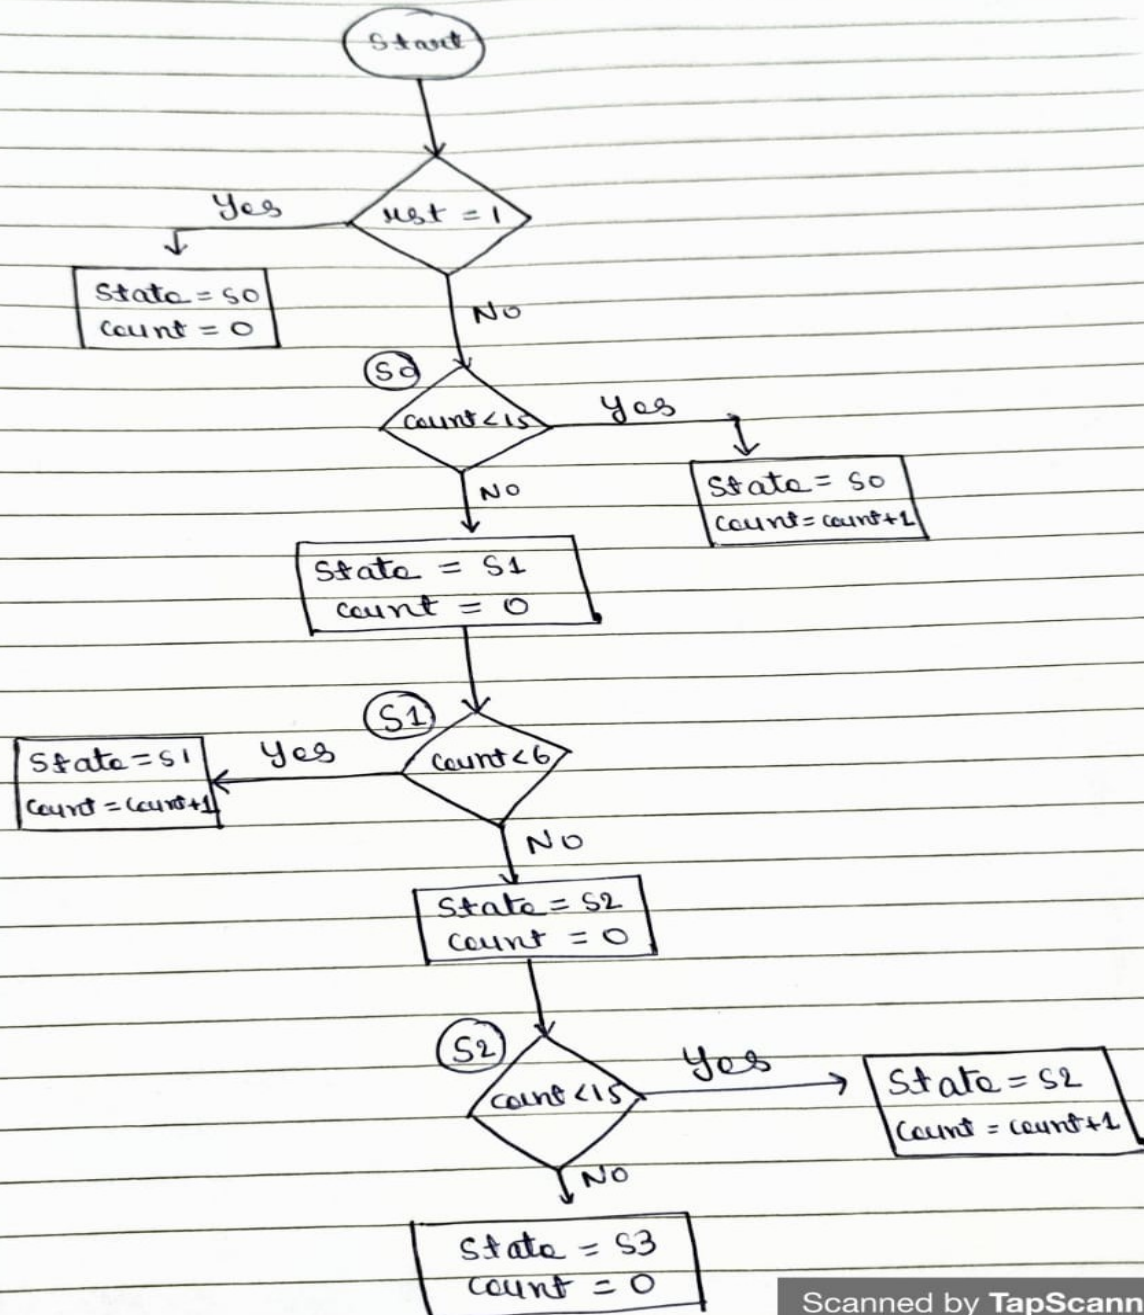 Start
rst = 1
Yes
State = S0
count = 0
No
S0
count < 15
Yes
State = S0
count = count+1
No
State = S1
count = 0
S1
count < 6
Yes
State = S1
count = count+1
No
State = S2
count = 0
S2
count < 15
Yes
State = S2
count = count+1
No
State = S3
count = 0
Scanned by TapScann